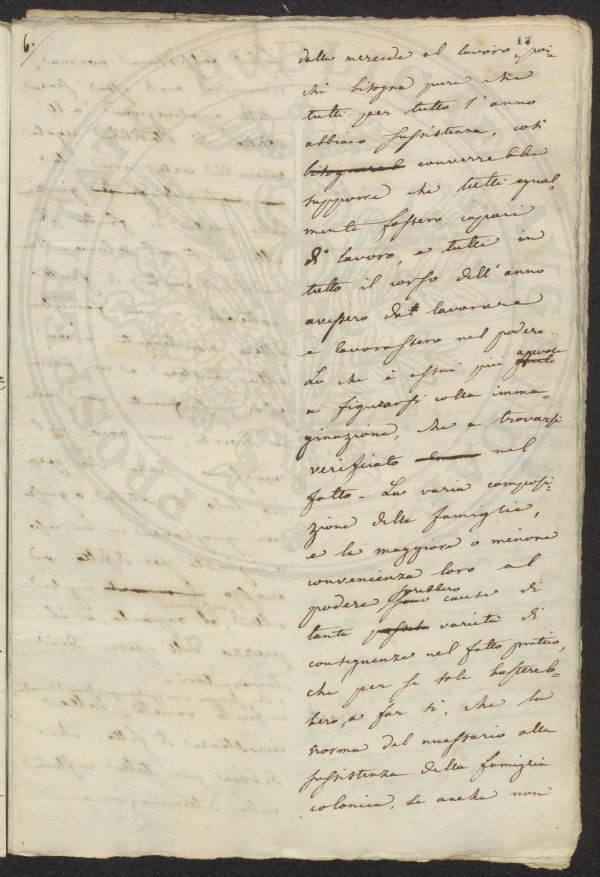 6.
12
della mercede al lavoro, poi-
chè bisogna pure che
tutti per tutto l'anno
abbiano sussistenza, così
converrebbe
supporre che tutti egual-
mente fossero capaci
di lavoro, e tutti in
tutto il corso dell'anno
avessero da lavorare
e lavorassero nel podere.
Lo che è assai più agevole
a figurarsi colla imma-
ginazione, che a trovarsi
verificato nel
fatto - La varia composi-
zione delle famiglie,
e la maggiore o minore
convenienza loro al
podere sarebbero cause di
tante varietà di
conseguenze nel fatto pratico,
che per se sole bastereb-
bero a far sì, che la
norma del necessario alla
sussistenza della famiglia
colonica, se anche non